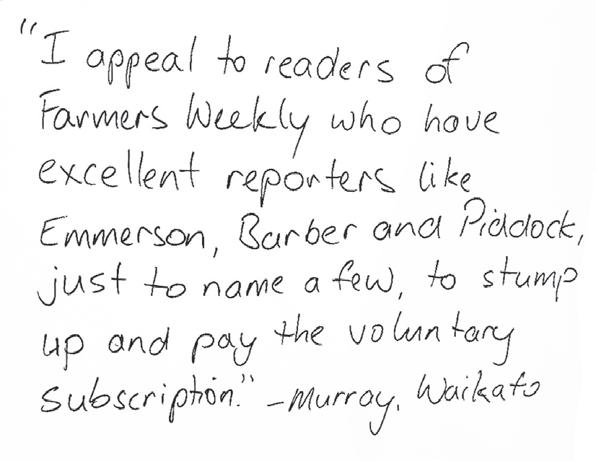 "I appeal to readers of
Farmers Weekly who have
excellent reporters like
Emmerson, Barber and Piddock,
just to name a few, to stump
up and pay the voluntary
subscription." -Murray, Waikato